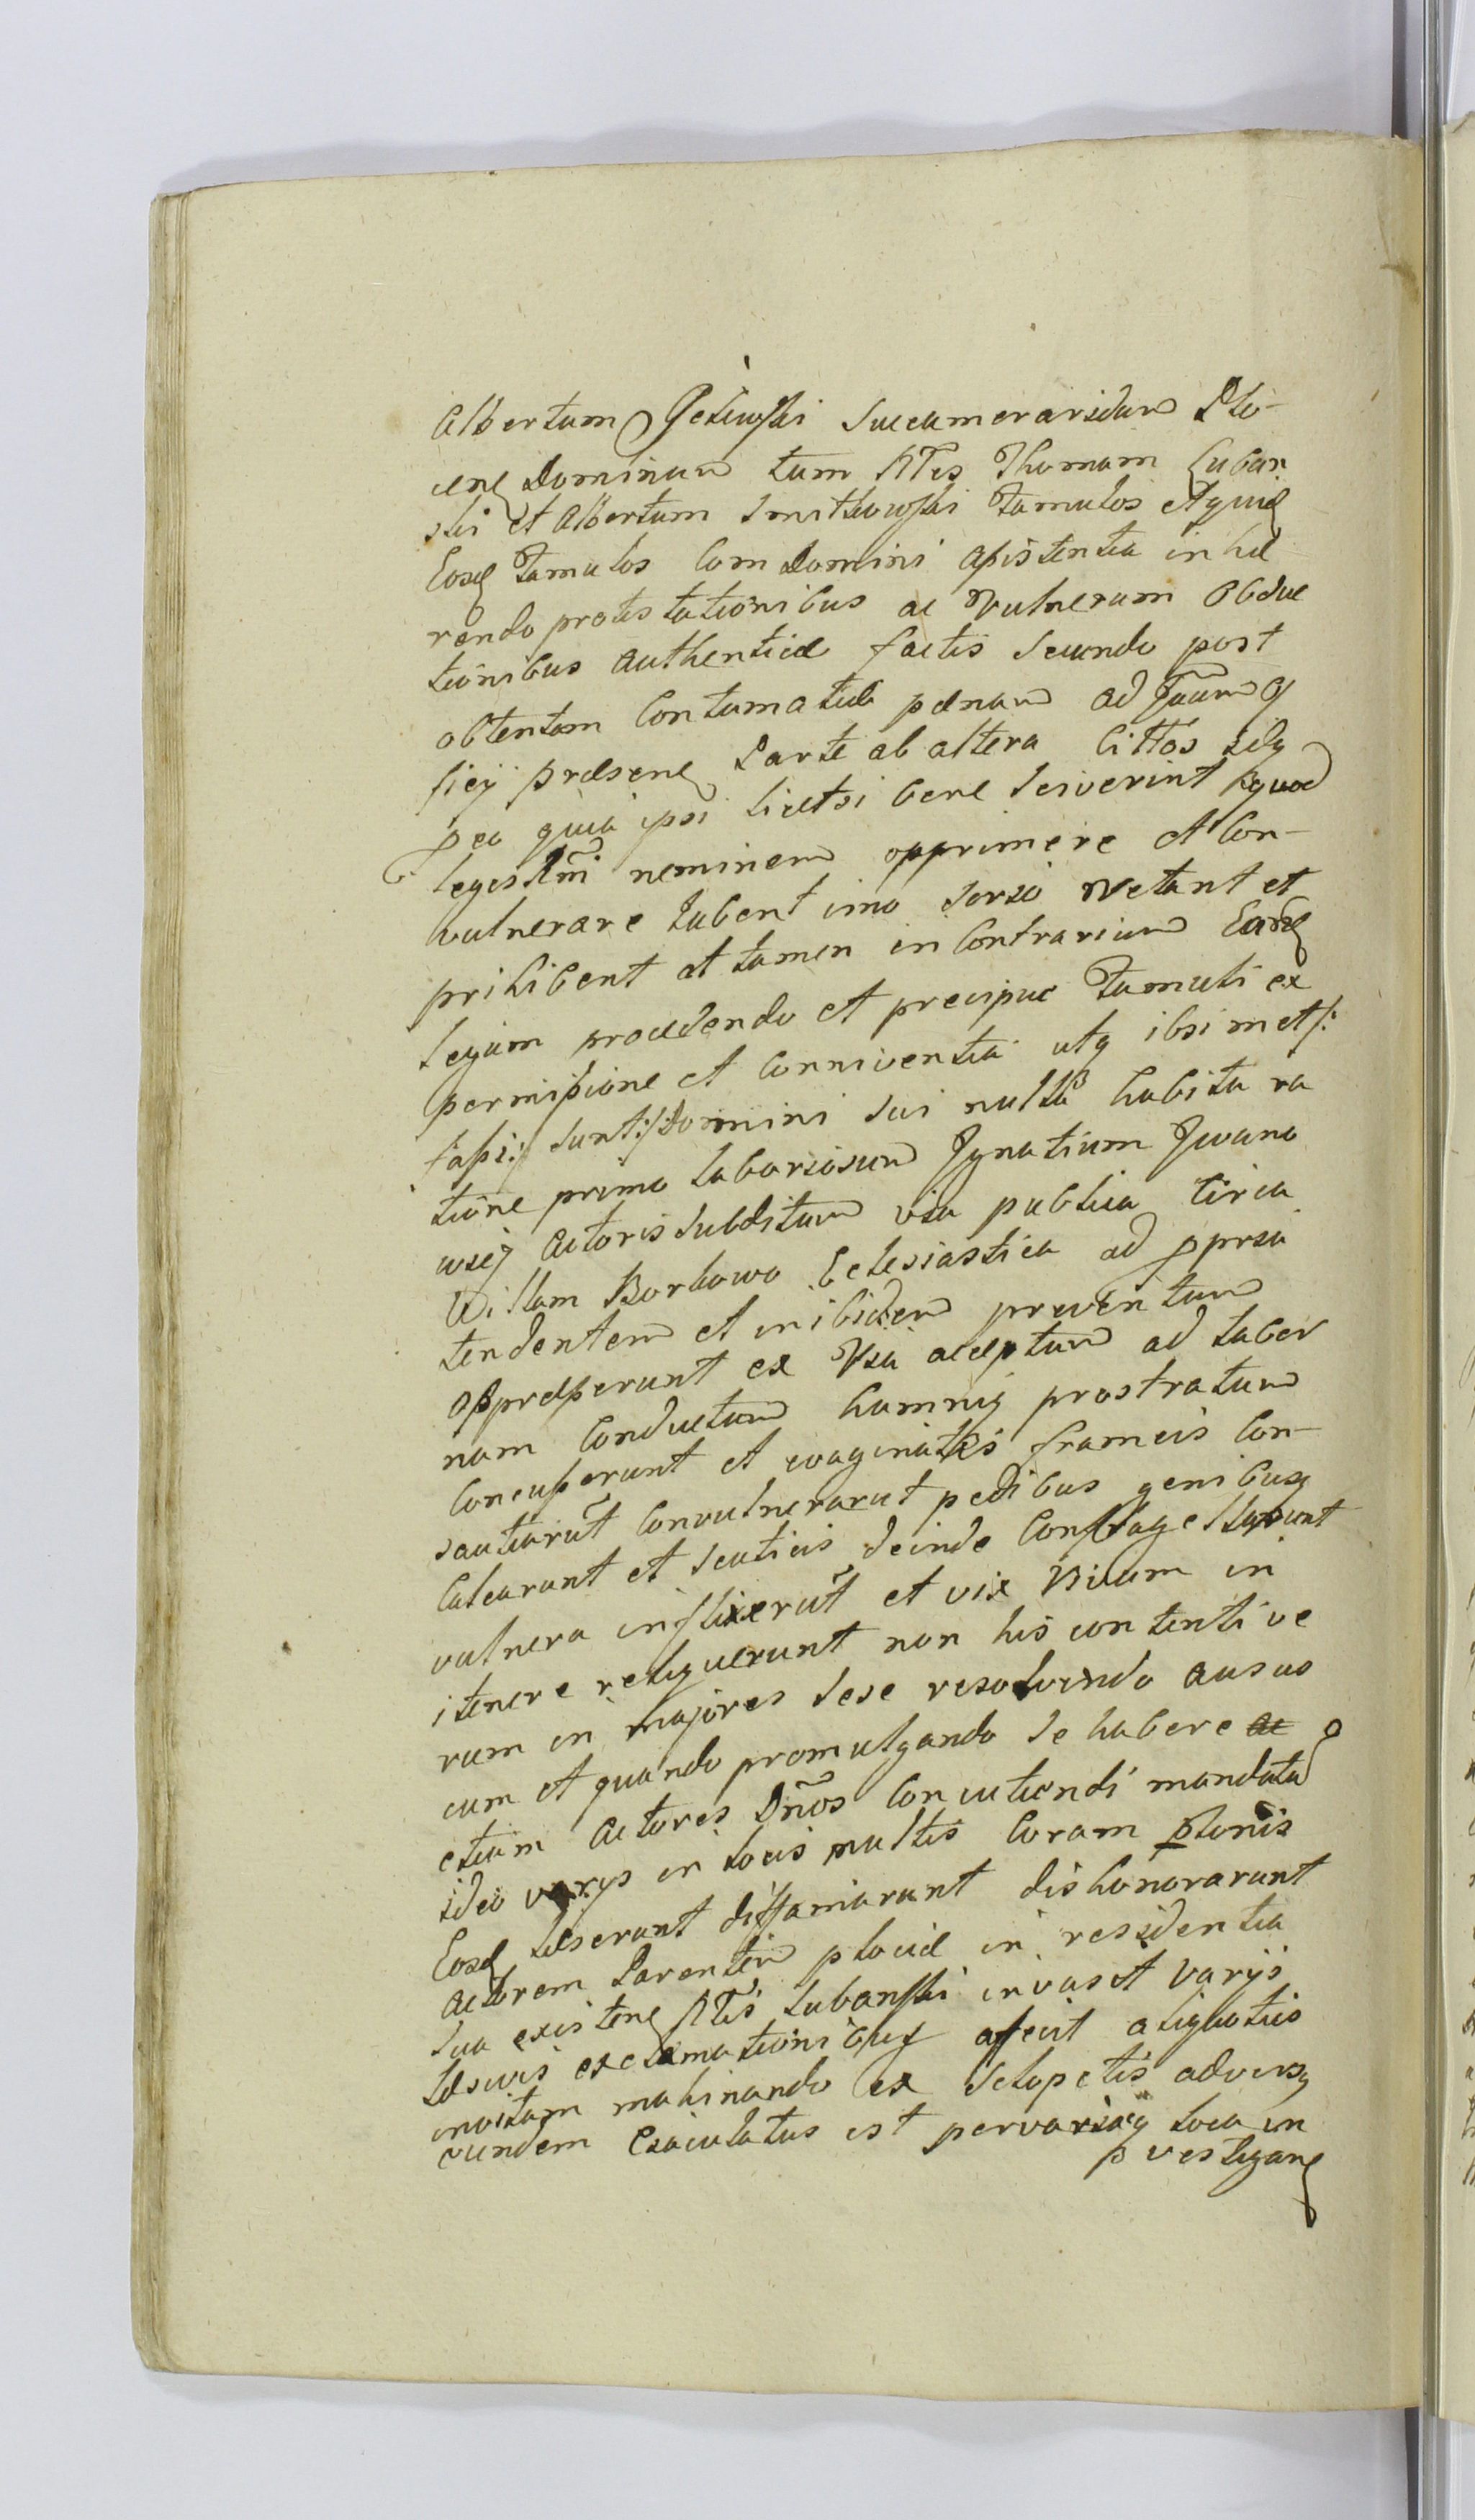 Albertum Succameraridam Plo-
cen Dominum tum Thomam Luban
ski et Albertum Smitkowski Famulos
Eosd Famulos Com Domini assistentia inhæ
rendo protestationibus ac Vulnerum Obduc
tionibus authentice factis Secundo post
obtentam Contumatiæ pænam ad
præsen Parte ab altera Cittos
quia ipsi licet si bene Sciverint quod
leges neminem opprimere et Con-
vulnerare Iubent imo vetant et
prihibent at tamen in Contrarium Earud
legum procedendo et precipue Famuli ex
permissione et Conniventia utq ibsimet /:
fassi :/ sunt :/ Domini Sui nulla habita ra
tione primo laboriosum Ignatium Iwano
Actoris Subditum via publica Circa
Villam Borkowo Eclesiastica ad
tendentem et inibidem preventum
Appresserunt ex Via aceptum ad taber
nam Conductum prostratum
Concusserunt et evaginatis frameis Con-
sautiarut Convulnerarut pedibus genibusq
Calcarunt et Scuticis deinde Conflagellarunt
vulnera inflixerut et vix Vivum in
itenere reliquerunt non his contenti ve
rum in majores Sese resolvendo ausus
cum et quando promulgando Se habere ac
etiam Actores Dnos Concutiendi mandata
ideo varys in locis multis Coram
Eosd læserunt diffamarunt dishonorarunt
Actorem Parentem placide in residentia
Sua existen Lubanski invasit varijs
læsivis exclamationibus afecit
invitam mahinando ex Sclopetis adversq
eundem Exiaculatus est loca in
vestigan